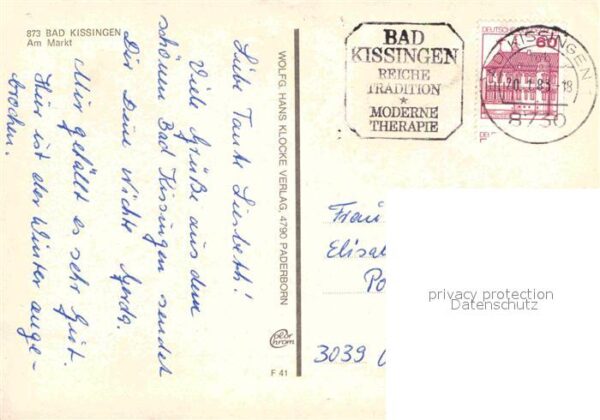 873 BAD KISSINGEN
Am Markt
Liebe Tante Lisbeth!
Viele Grüße aus dem
schönen Bad Kissingen sendet
Dir Deine Nichte Gerda.
Mir gefällt es sehr gut.
Hier ist der Winter ange-
brochen.
WOLFG. HANS KLOCKE VERLAG, 4790 PADERBORN
color
chrom
F 41
BAD
KISSINGEN
REICHE
TRADITION
*
MODERNE
THERAPIE
DEUTSCHE
60
BAD KISSINGEN
8730
Frau
3039
privacy protection
Datenschutz